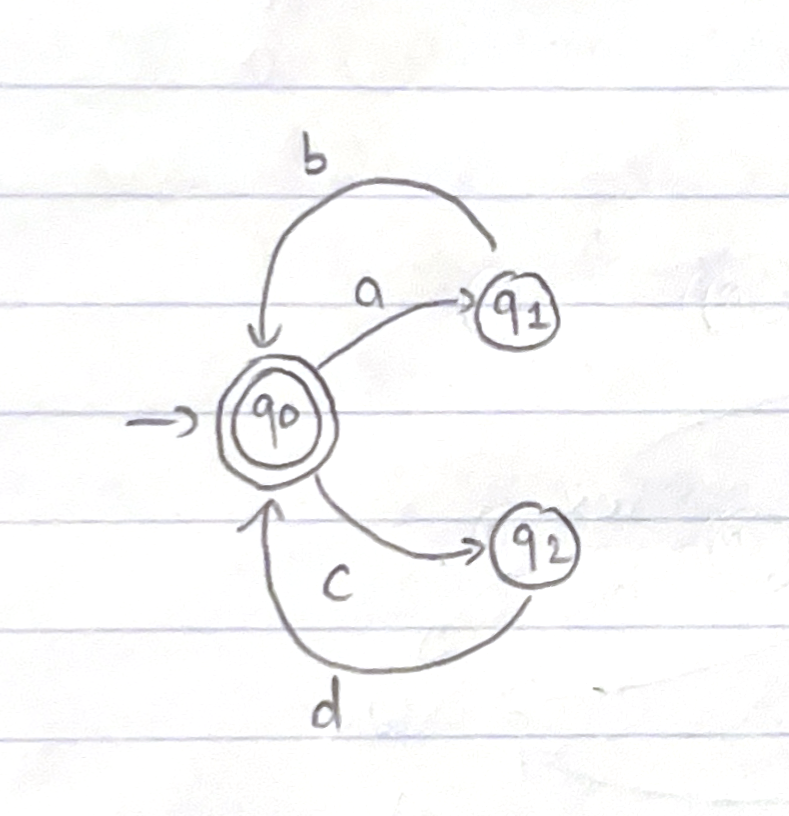 b
a
q1
q0
q2
c
d